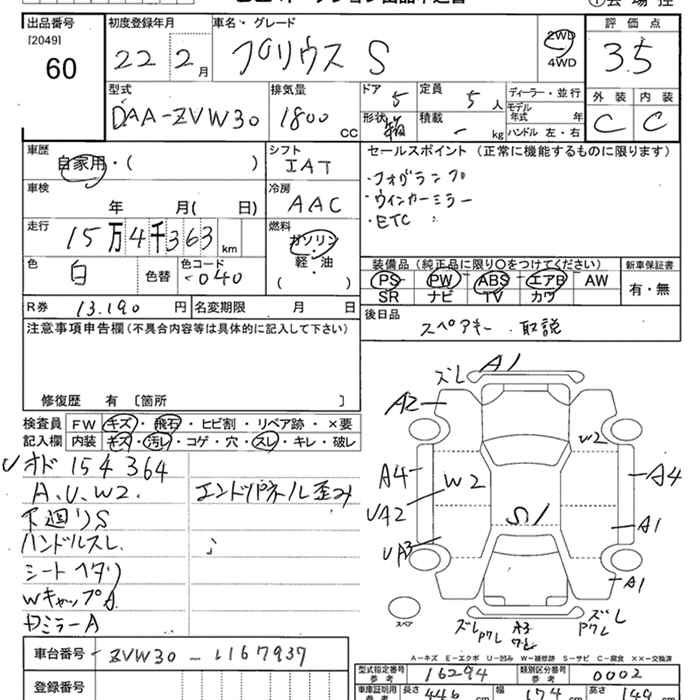 出品番号
[2049]
60
初度登録年月
22 2月
車名・グレード
プリウス S
2WD
4WD
評価点
3.5
型式
DAA-ZVW30
排気量
1800 CC
ドア 5
定員 5人
ディーラー・並行
モデル年式 年
形状 箱
積載 - kg
ハンドル 左・右
外装 内装
C C
車歴
自家用・( )
シフト
IAT
セールスポイント(正常に機能するものに限ります)
・フォグランプ
・ウインカーミラー
・ETC
車検
年 月( 日)
冷房
AAC
走行
15万4千363km
燃料
ガソリン
軽・油
( )
色
白
色替
色コード
040
装備品(純正品に限り○をつけてください)
新車保証書
PS PW ABS エアB AW
SR ナビ TV カワ
有・無
R券 13.190円
名変期限 月 日
後日品
スペアキー 取説
注意事項申告欄(不具合内容等は具体的に記入して下さい)
修復歴 有 〔箇所 〕
検査員
記入欄
FW キズ・飛石・ヒビ割・リペア跡・×要
内装 キズ・汚レ・コゲ・穴・スレ・キレ・破レ
オド 154364
A.U.W2.
エンドパネル歪み
下廻りS
ハンドルスレ
シートヘタリ
WキャップA
ズレ A1
A2
W2
A4
W2
A4
UA2
S1
A1
UA3
A1
スペア
ズレ
ズレ
A-キズ E-エクボ U-凹み W-補修跡 S-サビ C-腐食 ××-交換済
車台番号 ZVW30-1167937
登録番号
型式指定番号
参考
16294
類別区分番号
参考
0002
車庫証明用
参考
長さ 446
幅 174
高さ 149